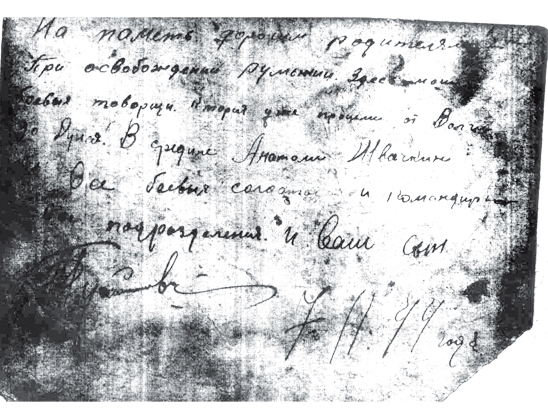 На память дорогим родителям
При освобождении румынии. Здесь мои
боевыя товарищи. которыя уже прошли от Волги
до Дуная. В средине Анатоли Швачкин
Все боевыя солдаты и командиры
подразделения. и Ваш сын
7/II.44 года